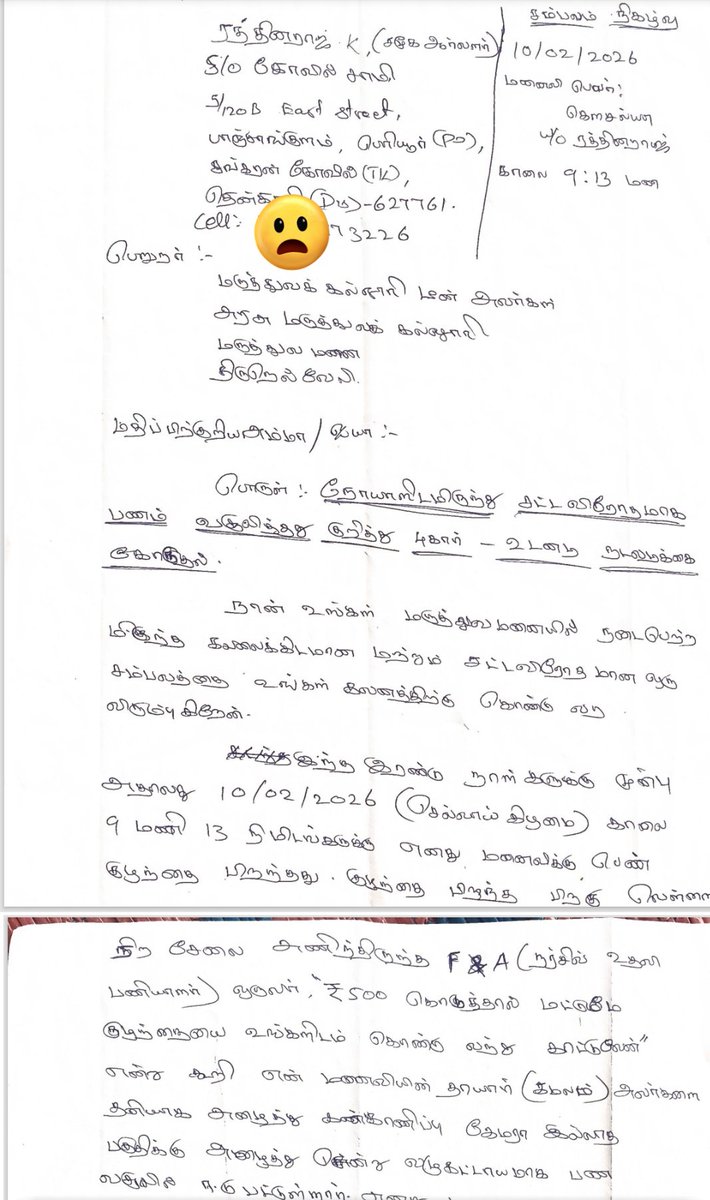 ரத்தினராஜ். K, (சமூக ஆர்வலர்)
S/O கோவில் சாமி
5/120B East Street,
பாஞ்சாங்குளம், பெரியூர் (PO),
சங்கரன் கோவில் (TK),
தென்காசி (DM) - 627761.
Cell: 73226
சம்பவம் நிகழ்வு
10/02/2026
மனைவி பெயர்:
கௌசல்யா
W/O ரத்தினராஜ்
காலை 9:13 மணி
பெறுநர் :-
மருத்துவக் கல்லூரி டீன் அவர்கள்
அரசு மருத்துவக் கல்லூரி
மருத்துவ மனை
திருநெல்வேலி.
மதிப்பிற்குரிய அம்மா / ஐயா :-
பொருள் :- நோயாளிடமிருந்து சட்டவிரோதமாக
பணம் வசூலித்தது குறித்து புகார் - உடனடி நடவடிக்கை
கோருதல்.
நான் உங்கள் மருத்துவமனையில் நடைபெற்ற
மிகுந்த கவலைக்கிடமான மற்றும் சட்டவிரோதமான ஒரு
சம்பவத்தை உங்கள் கவனத்திற்கு கொண்டு வர
விரும்புகிறேன்.
இந்த இரண்டு நாள் களுக்கு முன்பு
அதாவது 10/02/2026 (செவ்வாய் கிழமை) காலை
9 மணி 13 நிமிடங்களுக்கு எனது மனைவிக்கு பெண்
குழந்தை பிறந்தது. குழந்தை பிறந்த பிறகு வெள்ளை
நிற சேலை அணிந்திருந்த FNA (நர்சிங் உதவி
பணியாளர்) ஒருவர், "₹500 கொடுத்தால் மட்டுமே
குழந்தையை உங்களிடம் கொண்டு வந்து காட்டுவேன்"
என்று கூறி என் மனைவியின் தாயார் (கமலம்) அவர்களை
தனியாக அழைத்து கண்காணிப்பு கேமரா இல்லாத
பகுதிக்கு அழைத்து சென்று வழுகட்டாயமாக பண
வசூலில் ஈடுபட்டுள்ளார்.